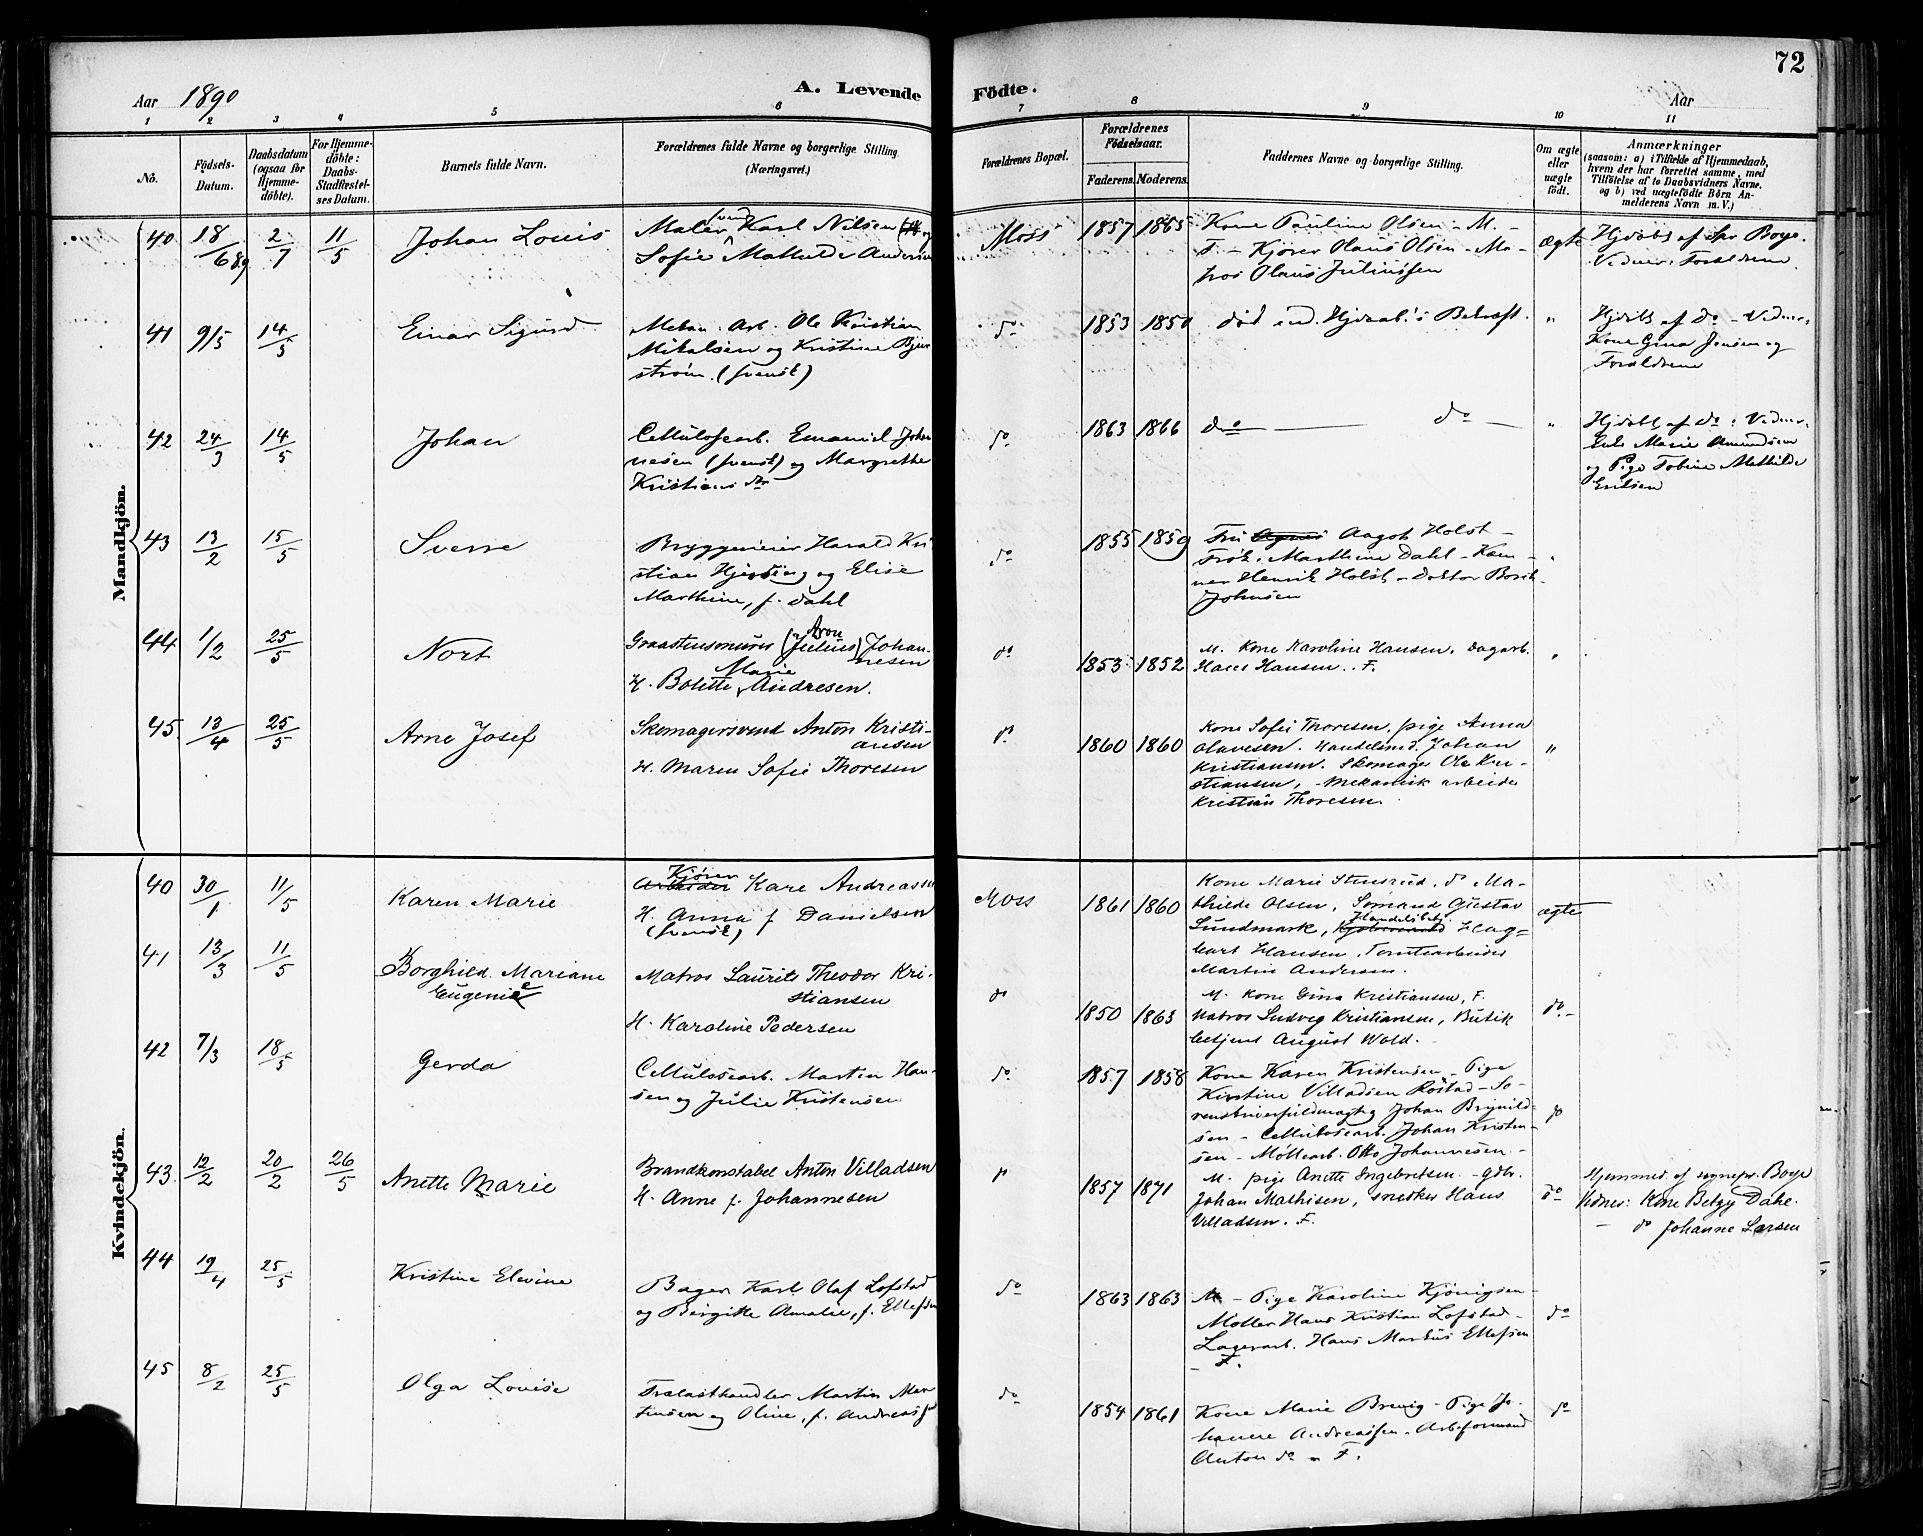 72
Aar 1890
A. Levende Fødte.
Aar
1 2 3 4 5 6 7 8 9 10 11
No.
Fødsels-Datum.
Daabsdatum (ogsaa for Hjemme-døbte).
For Hjemme-døbte: Daabs-Stadfæstel-ses Datum.
Barnets fulde Navn.
Forældrenes fulde Navne og borgerlige Stilling. (Næringsvei.)
Forældrenes Bopæl.
Forældrenes Fødselsaar.
Faderens. Moderens.
Faddernes Navne og borgerlige Stilling.
Om ægte eller uægte født.
Anmærkninger
(saasom: a) i Tilfælde af Hjemmedaab,
hvem der har forrettet samme, med
Tilføielse af to Daabsvidners Navne,
og b) ved uægtefødte Børn An-
melderens Navn m. V.)
Mandkjön.
40 18/6 89 2/7 11/5 Johan Louis
Maler svend Karl Nilsen og
Sofie Mathilde Andersen
Moss 1857 1865
Kone Pauline Olsen - M. -
F. - Kjører Olaus Olsen - Ma-
tros Olaus Juliussen
ægte
Hjdøbt af Spr Boye.
Vidner: Forældrene
41 9/5 14/5 Einar Sigurd
Mekan. Arb. Ole Kristian
Mikalsen og Kristine Bjur
strøm. (svensk)
do 1853 1850
død ind. Hjdaab's Bekræft.
"
Hjdøbt af do - Vidner,
Kone Gina Jensen og
Forældrene
42 24/3 14/5 Johan
Cellulosearb. Emanuel Johan
nesen (svensk) og Margrethe
Kristians dtr
do 1863 1866
do do
"
Hjdøbt af do: Vidner,
Enke Marie Amundsen
og Pige Tobine Mathilde
Eriksen
43 13/2 15/5 Sverre
Bryggerieier Harald Kri
stian Hjersing og Elise
Marthine, f. Dahl
do 1855 1859
Fru Aagot Holst -
Frøk. Marthine Dahl - Kam-
ner Henrik Holst - Doktor Borck-
Johnsen
"
44 1/2 25/5 Nort
Graastensmurer (Aron Julius) Johan-
nesen
H. Bolette Marie Andresen.
do 1853 1852
M. Kone Karoline Hansen, Dagarb.
Hans Hansen. F.
"
45 13/4 25/5 Arne Josef
Skomagersvend Anton Kristi-
ansen
H. Maren Sofie Thoresen
do 1860 1860
Kone Sofie Thoresen, pige Anna
Olavesen. Handelsmd. Johan
Kristiansen. Skomager Ole Kri-
stiansen, - Mekanisk arbeider
Kristian Thoresen.
"
Kvindekjön.
40 30/1 11/5 Karen Marie
Arbeider Kjører Kare Andreassen
H. Anna f. Danielsen
(svensk)
Moss 1861 1860
Kone Marie Stensrud, do Ma-
thilde Olsen, Sømand Gustav
Sundmark, Handelsbetj. Hag-
bart Hansen, Tomtearbeider
Martin Andersen.
ægte
41 13/3 11/5 Borghild Mariane
Eugenie
Matros Laurits Theodor Kri-
stiansen
H. Karoline Pedersen
do 1850 1863
M. Kone Gina Kristiansen, F.
Matros Ludvig Kristiansen, Butik
betjent August Wold.
do
42 7/3 18/5 Gerda
Cellulosearb. Martin Han-
sen og Julie Kristensen
do 1857 1858
Kone Karen Kristensen - Pige
Kirstine Villadsen Røstad - So-
renskriverfuldmægtig Johan Brynild-
sen - Cellulosearb. Johan Kristen-
sen - Møllearb. Otto Johannesen -
do
43. 12/2 20/2 26/5 Anette Marie
Brandkonstabel Anton Villadsen
H. Anne f. Johannesen
do 1857 1871
M. pige Anette Ingebretsen. - Gdbr.
Johan Mathisen, snedker Hans
Villadsen. F.
do
Hjemmed. af sognepr. Boye
Vidner: Kone Betzy Dahl
- do Johanne Larsen
44 19/4 25/5 Kristine Elevine
Bager Karl Olaf Lofstad
og Birgitte Amalie, f. Ellefsen
do 1863 1863
M - Pige Karoline Kjønigsen -
Møller Hans Kristian Lofstad -
Lagerarb. Hans Markus Ellefsen
- F.
do
45 8/2 25/5 Olga Louise
Trælasthandler Martin Mar
tinsen og Oline, f. Andreassen
do 1854 1861
Kone Marie Brevig - Pige Jo-
hanne Andreassen - Arb.formand
Anton do - F.
do